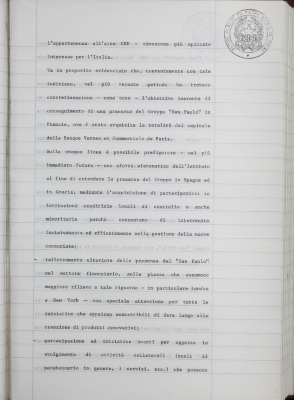 l'appartenenza all'area CEE - rivestono più spiccato
interesse per l'Italia.
Va in proposito evidenziato che, coerentemente con tale
indirizzo, nel più recente periodo ha trovato
concretizzazione - come noto - l'obiettivo inerente il
conseguimento di una presenza del Gruppo "San Paolo" in
Francia, con è stata acquisita la totalità del capitale
della Banque Vernes et Commerciale de Paris.
Sulla stessa linea è possibile prefigurare - nel più
immediato futuro - uno sforzo sistematico dell'Istituto
al fine di estendere la presenza del Gruppo in Spagna ed
in Grecia, mediante l'acquisizione di partecipazioni in
istituzioni creditizie locali di controllo o anche
minoritarie purché consentano di intervenire
incisivamente ed efficacemente nella gestione delle nuove
consociate;
- rafforzamento ulteriore della presenza del "San Paolo"
nel settore finanziario, sulle piazze che assumono
maggiore rilievo a tale riguardo - in particolare Londra
e New York - con speciale attenzione per tutte le
iniziative che appaiono suscettibili di dare luogo alla
creazione di prodotti innovativi;
- partecipazione ad iniziative aventi per oggetto lo
svolgimento di attività collaterali (quali il
parabancario in genere, i servizi, ecc.) che possono